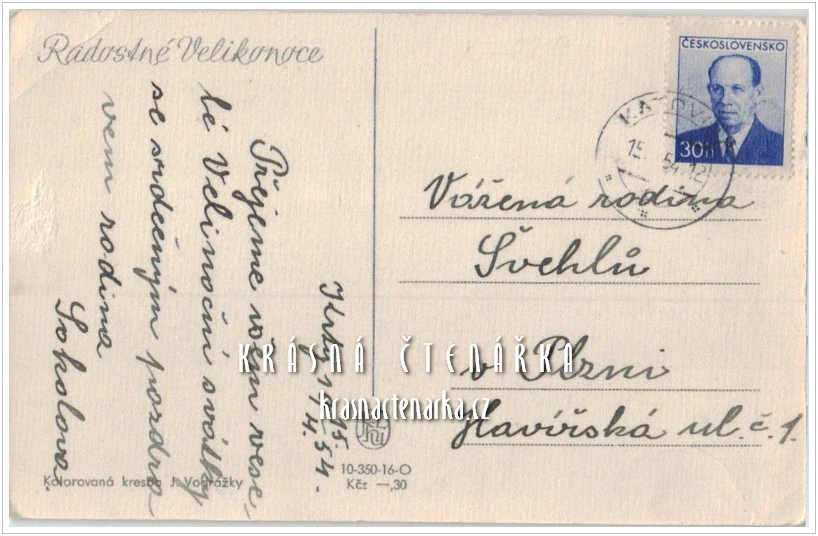 Radostné Velikonoce
ČESKOSLOVENSKO
30h
15. 54-12
15
4. 54.
Přejeme vám vese,
lé Velinoční svátky
se srdečným pozdra
vem rodina
Sokolova.
Vážená rodina
Švehlů
v Plzni
Havířská ul. č. 1.
KRÁSNÁ ČTENÁŘKA
krasnactenarka.cz
10-350-16-O
Kčs —,30
Kolorovaná kresba J. Vodrážky